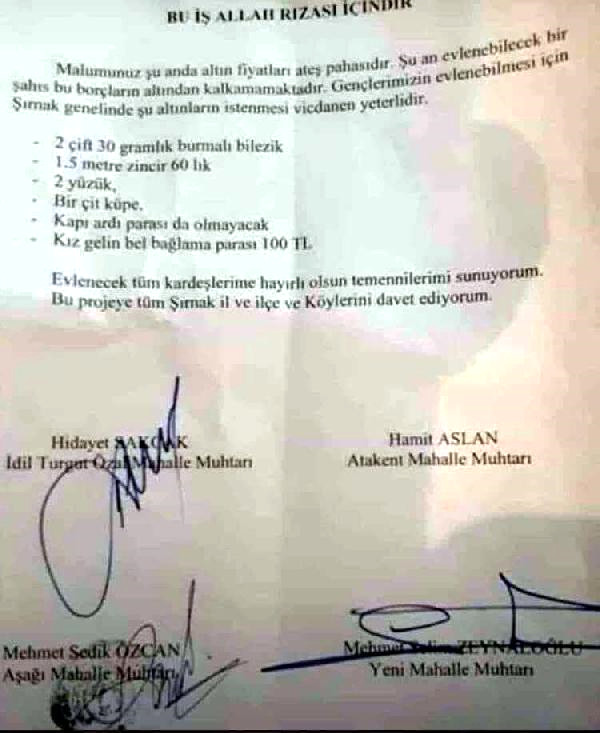 BU İŞ ALLAH RIZASI İÇİNDİR
Malumunuz şu anda altın fiyatları ateş pahasıdır. Şu an evlenebilecek bir
şahıs bu borçların altından kalkamamaktadır. Gençlerimizin evlenebilmesi için
Şırnak genelinde şu altınların istenmesi vicdanen yeterlidir.
- 2 çift 30 gramlık burmalı bilezik
- 1.5 metre zincir 60 lık
- 2 yüzük,
- Bir çit küpe,
- Kapı ardı parası da olmayacak
- Kız gelin bel bağlama parası 100 TL
Evlenecek tüm kardeşlerime hayırlı olsun temennilerimi sunuyorum.
Bu projeye tüm Şırnak il ve ilçe ve Köylerini davet ediyorum.
Hidayet
İdil Turgut Özal Mahalle Muhtarı
Hamit ASLAN
Atakent Mahalle Muhtarı
Mehmet Sedik ÖZCAN
Aşağı Mahalle Muhtarı
Mehmet Selim ZEYNALOĞLU
Yeni Mahalle Muhtarı